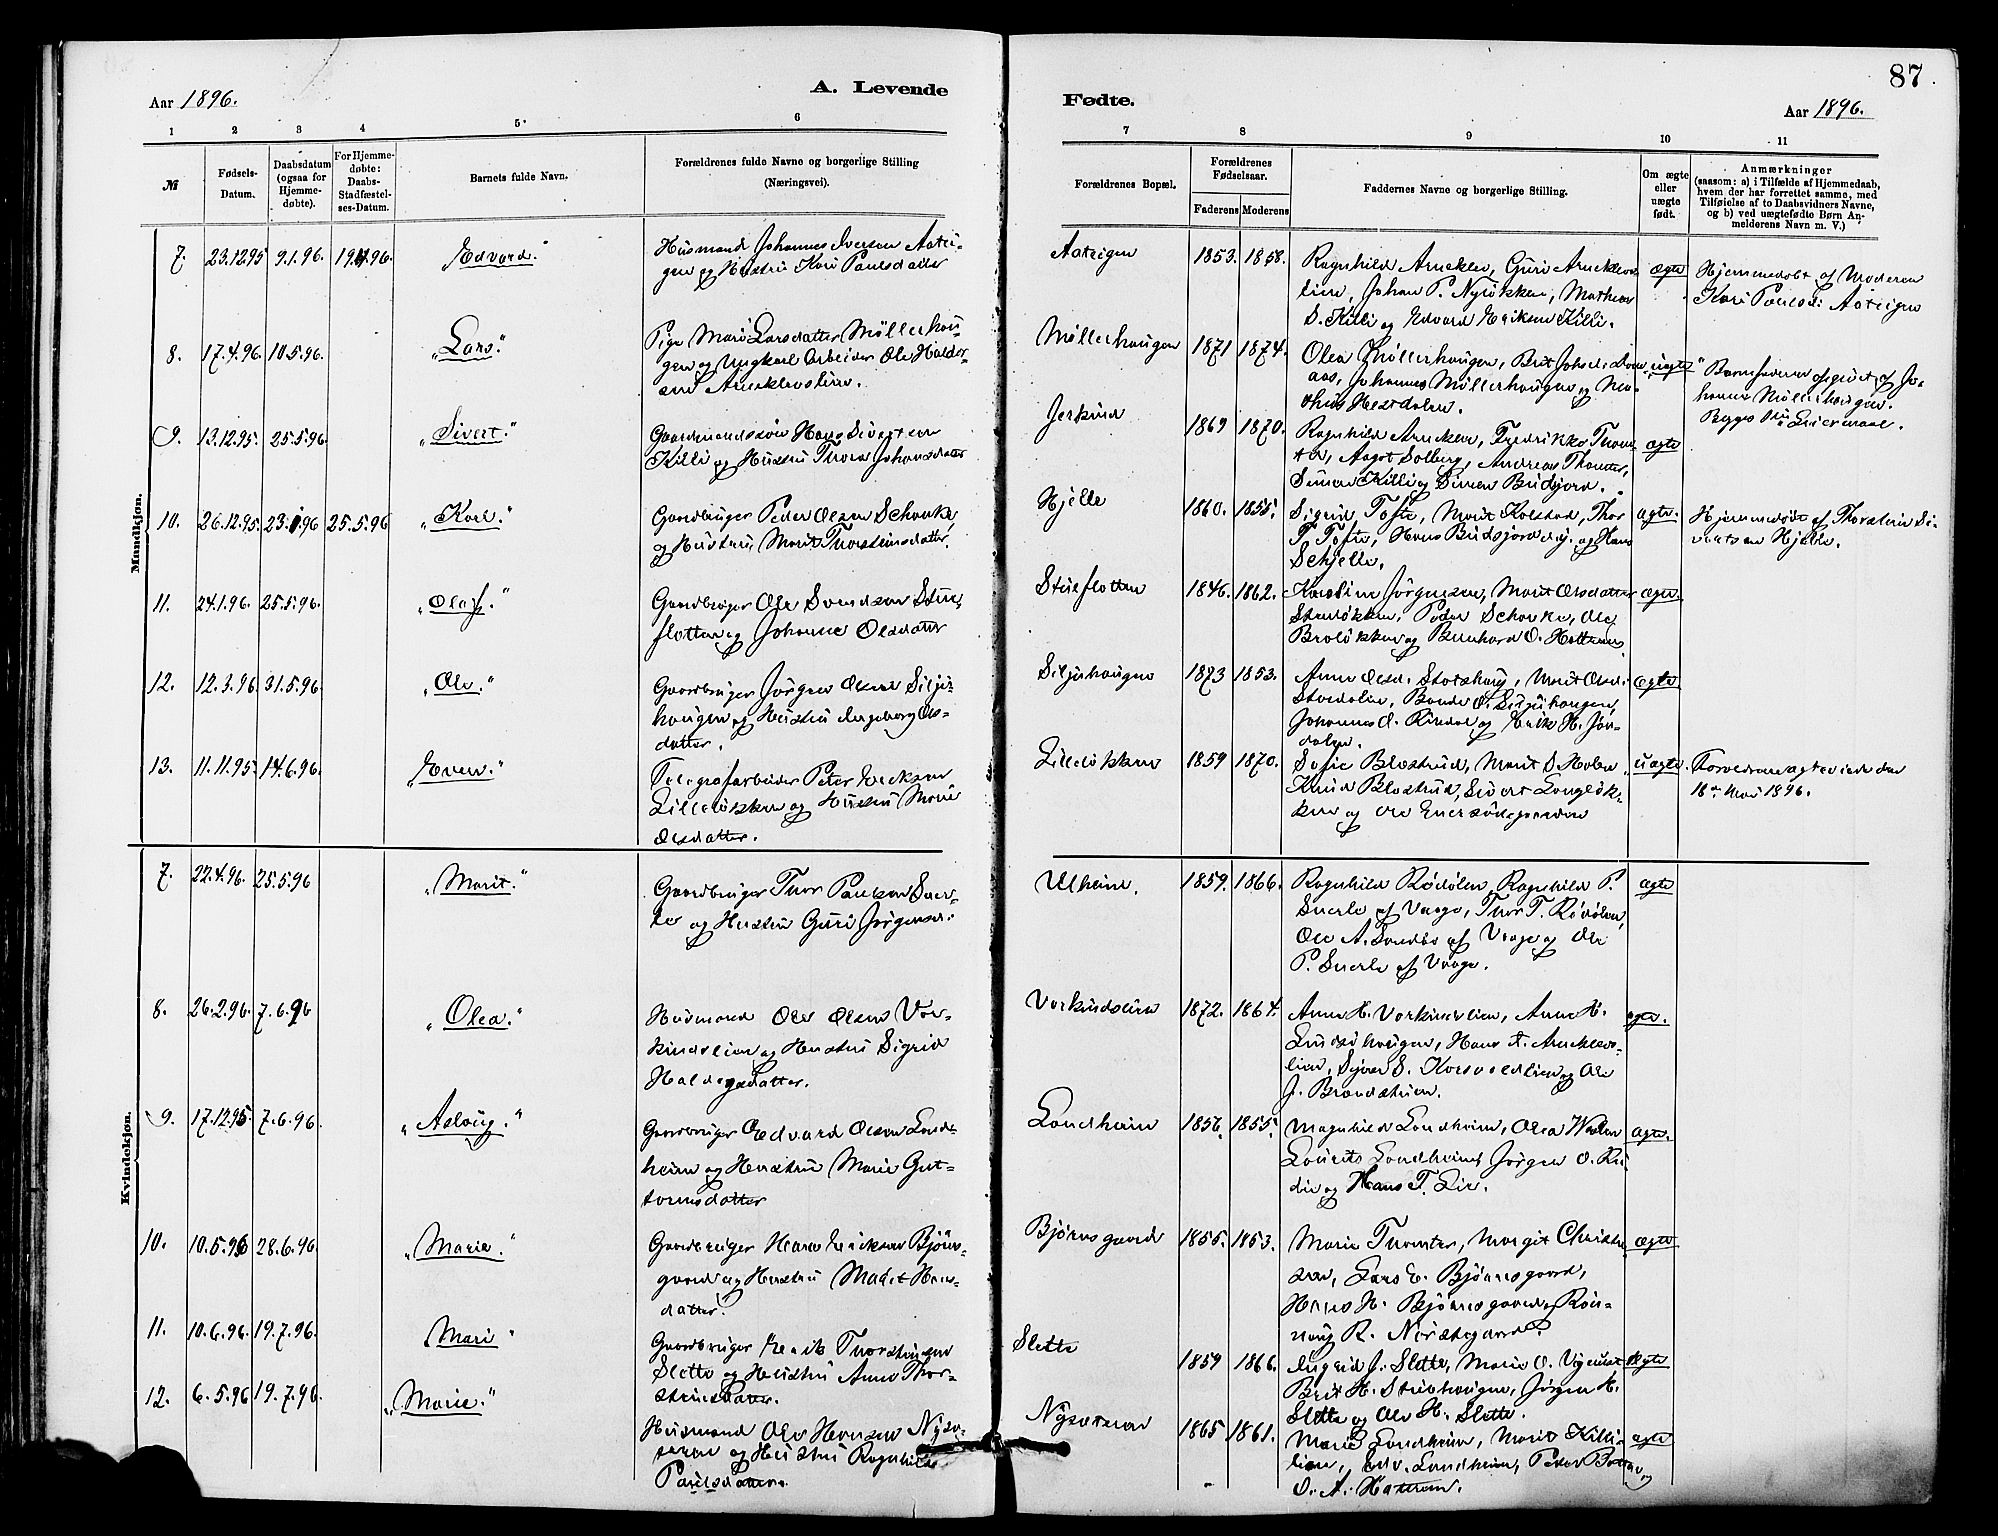 87
Aar 1896.
A. Levende
Fødte.
Aar 1896.
1 2 3 4 5 6 7 8 9 10 11
№
Fødsels-
Datum.
Daabsdatum
(ogsaa for
Hjemme-
døbte).
For Hjemme-
døbte:
Daabs-
Stadfæstel-
ses-Datum.
Barnets fulde Navn.
Forældrenes fulde Navne og borgerlige Stilling
(Næringsvei).
Forældrenes Bopæl.
Forældrenes
Fødselsaar.
Faderens Moderens
Faddernes Navne og borgerlige Stilling.
Om ægte
eller
uægte
født.
Anmærkninger
(saasom: a) i Tilfælde af Hjemmedaab,
hvem der har forrettet samme, med
Tilføielse af to Daabsvidners Navne,
og b) ved uægtefødte Børn An-
melderens Navn m. V.)
Mandkjøn.
7. 23.12.95 9.1.96. 19.4.96. Edvard."
Husmand Johannes Iversen Aatei-
gen og Hustru Kari Paulsdatter
Aateigen 1853. 1858.
Ragnhild Arneklev, Guri Arneklevs-
lien, Johan P. Nyløkken, Mathias
S. Killi og Edvard Eriksen Killi.
ægte
Hjemmedøbt af Moderen
Kari Paulsd. Aateigen
8. 17.4.96. 10.5.96. "Lars."
Pige Mari Larsdatter Møllerhau-
gen og Ungkarl Arbeider Ole Haldor-
sen Arneklevslien.
Møllerhaugen 1871 1874.
Olea Møllerhaugen, Brit Johsd.
aas, Johannes Møllerhaugen og Ma-
thias Hestdalen.
uægte
" Barnefaderen opgivet af Jo-
hannes Møllerhaugen.
9. 13.12.95. 25.5.96. "Sivert."
Gaardmandssøn Hans Sivertsen
Killi og Hustru Thora Johansdatter
Jerkind 1869 1870.
Ragnhild Arneklev, Fredrikke Thom-
Aagot Solberg, Andreas Thomter,
Simen Killi og Simen Budsjord.
ægte
10. 26.12.95. 23.1.96 25.5.96 "Karl."
Gaardbruger Peder Olsen Schonke,
og Hustru, Marit Thorsteinsdatter.
Hjelle 1860. 1855.
Sigrid Tofte, Marit Kolstad, Thor
T. Tofte, Hans Budsjord og Hans
Schjelle.
ægte.
Hjemmedøbt af Thorstein Si-
vertsen Hjelle.
11. 24.1.96. 25.5.96. "Olaf."
Gaardbruger Ole Svendsen Stue-
flotten og Johanne Olsdatter
Stueflotten 1846. 1862.
Karoline Jørgensen, Marit Olsdatter
Peder Schonke, Ole
Broløkken og Bernhard O.
ægte
12. 12.3.96. 31.5.96. "Ole."
Gaardbruger Jørgen Olsen Silju-
haugen og Hustru Ingeborg Ols-
datter.
Siljuhaugen 1873 1853.
Anne Olsd. Storhaug, Marit Olsd.
Stordalen, O. Siljuhaugen,
Johannes O. Rindal og Erik H. Jør-
dalen.
ægte
13. 11.11.95. 14.6.96. "Even."
Telegrafarbeider Peter Eriksen
Lilleløkken og Hustru Marie
Olsdatter.
Lilleløkken 1859 1870.
Sofie Blestrud, Marit S. Holen
Knud Blestrud, Sivert Langløk-
ken og Ole
uægte.
Forældrene ægteviede den
18de Mai 1896.
Kvindekjøn.
7. 22.4.96. 25.5.96 "Marit."
Gaardbruger Thor Paulsen Suer-
le og Hustru Guri Jørgensd.
Ulheim. 1859. 1866.
Ragnhild Rødølen, Ragnhild P.
Suerle af Vaage, Thor T. Rødølen,
Ole A. Sandbo af Vaage og Ole
P. Suerle af Vaage.
ægte
8. 26.2.96. 7.6.96 "Olea."
Husmand Ole Olsen Vor-
kindslien og Hustru Sigrid
Haldorsdatter.
Vorkindslien 1872. 1864.
Anne H. Vorkindslien, Anne H.
haugen, Hans A. Arneklevs-
lien, Sjver S. Korsvoldlien og Ole
J. Brandstrøm.
ægte.
9. 17.12.95. 7.6.96 "Aslaug."
Gaardbruger Edvard Olsen Lond-
heim og Hustru Marie Gut-
tormsdatter
Londheim 1856. 1855.
Magnhild Londheim, Olea
Laurits Londheim, Jørgen O.
og Hans T. Lie.
ægte.
10. 10.5.96 28.6.96. "Marie."
Gaardbruger Hans Eriksen Bjørns-
gaard og Hustru Madit Hans-
datter.
Bjørnsgaard 1855. 1853.
Marie Thomter, Margit Christen-
sen, Lars E. Bjørnsgaard,
Hans H. Bjørnsgaard, Røn-
naug R. Nordsgaard.
ægte
11. 10.6.96. 19.7.96. Mari "
Gaardbruger Erik Thorsteinsen
Slette og Hustru Anne Thor-
steinsdatter.
Slette 1859 1866.
Ingrid J. Slette, Marie O.
Brit H. Stuehaugen, Jørgen H.
Slette og Ole H. Slette.
ægte
12. 6.5.96 19.7.96 "Marie."
Husmand Ole Hansen Nysæ-
teren og Hustru Ragnhild
Paulsdatter.
Nysæteren 1865 1861.
Marie Londheim, Marit Killi-
lien, Edv. Londheim, Peder
ægte